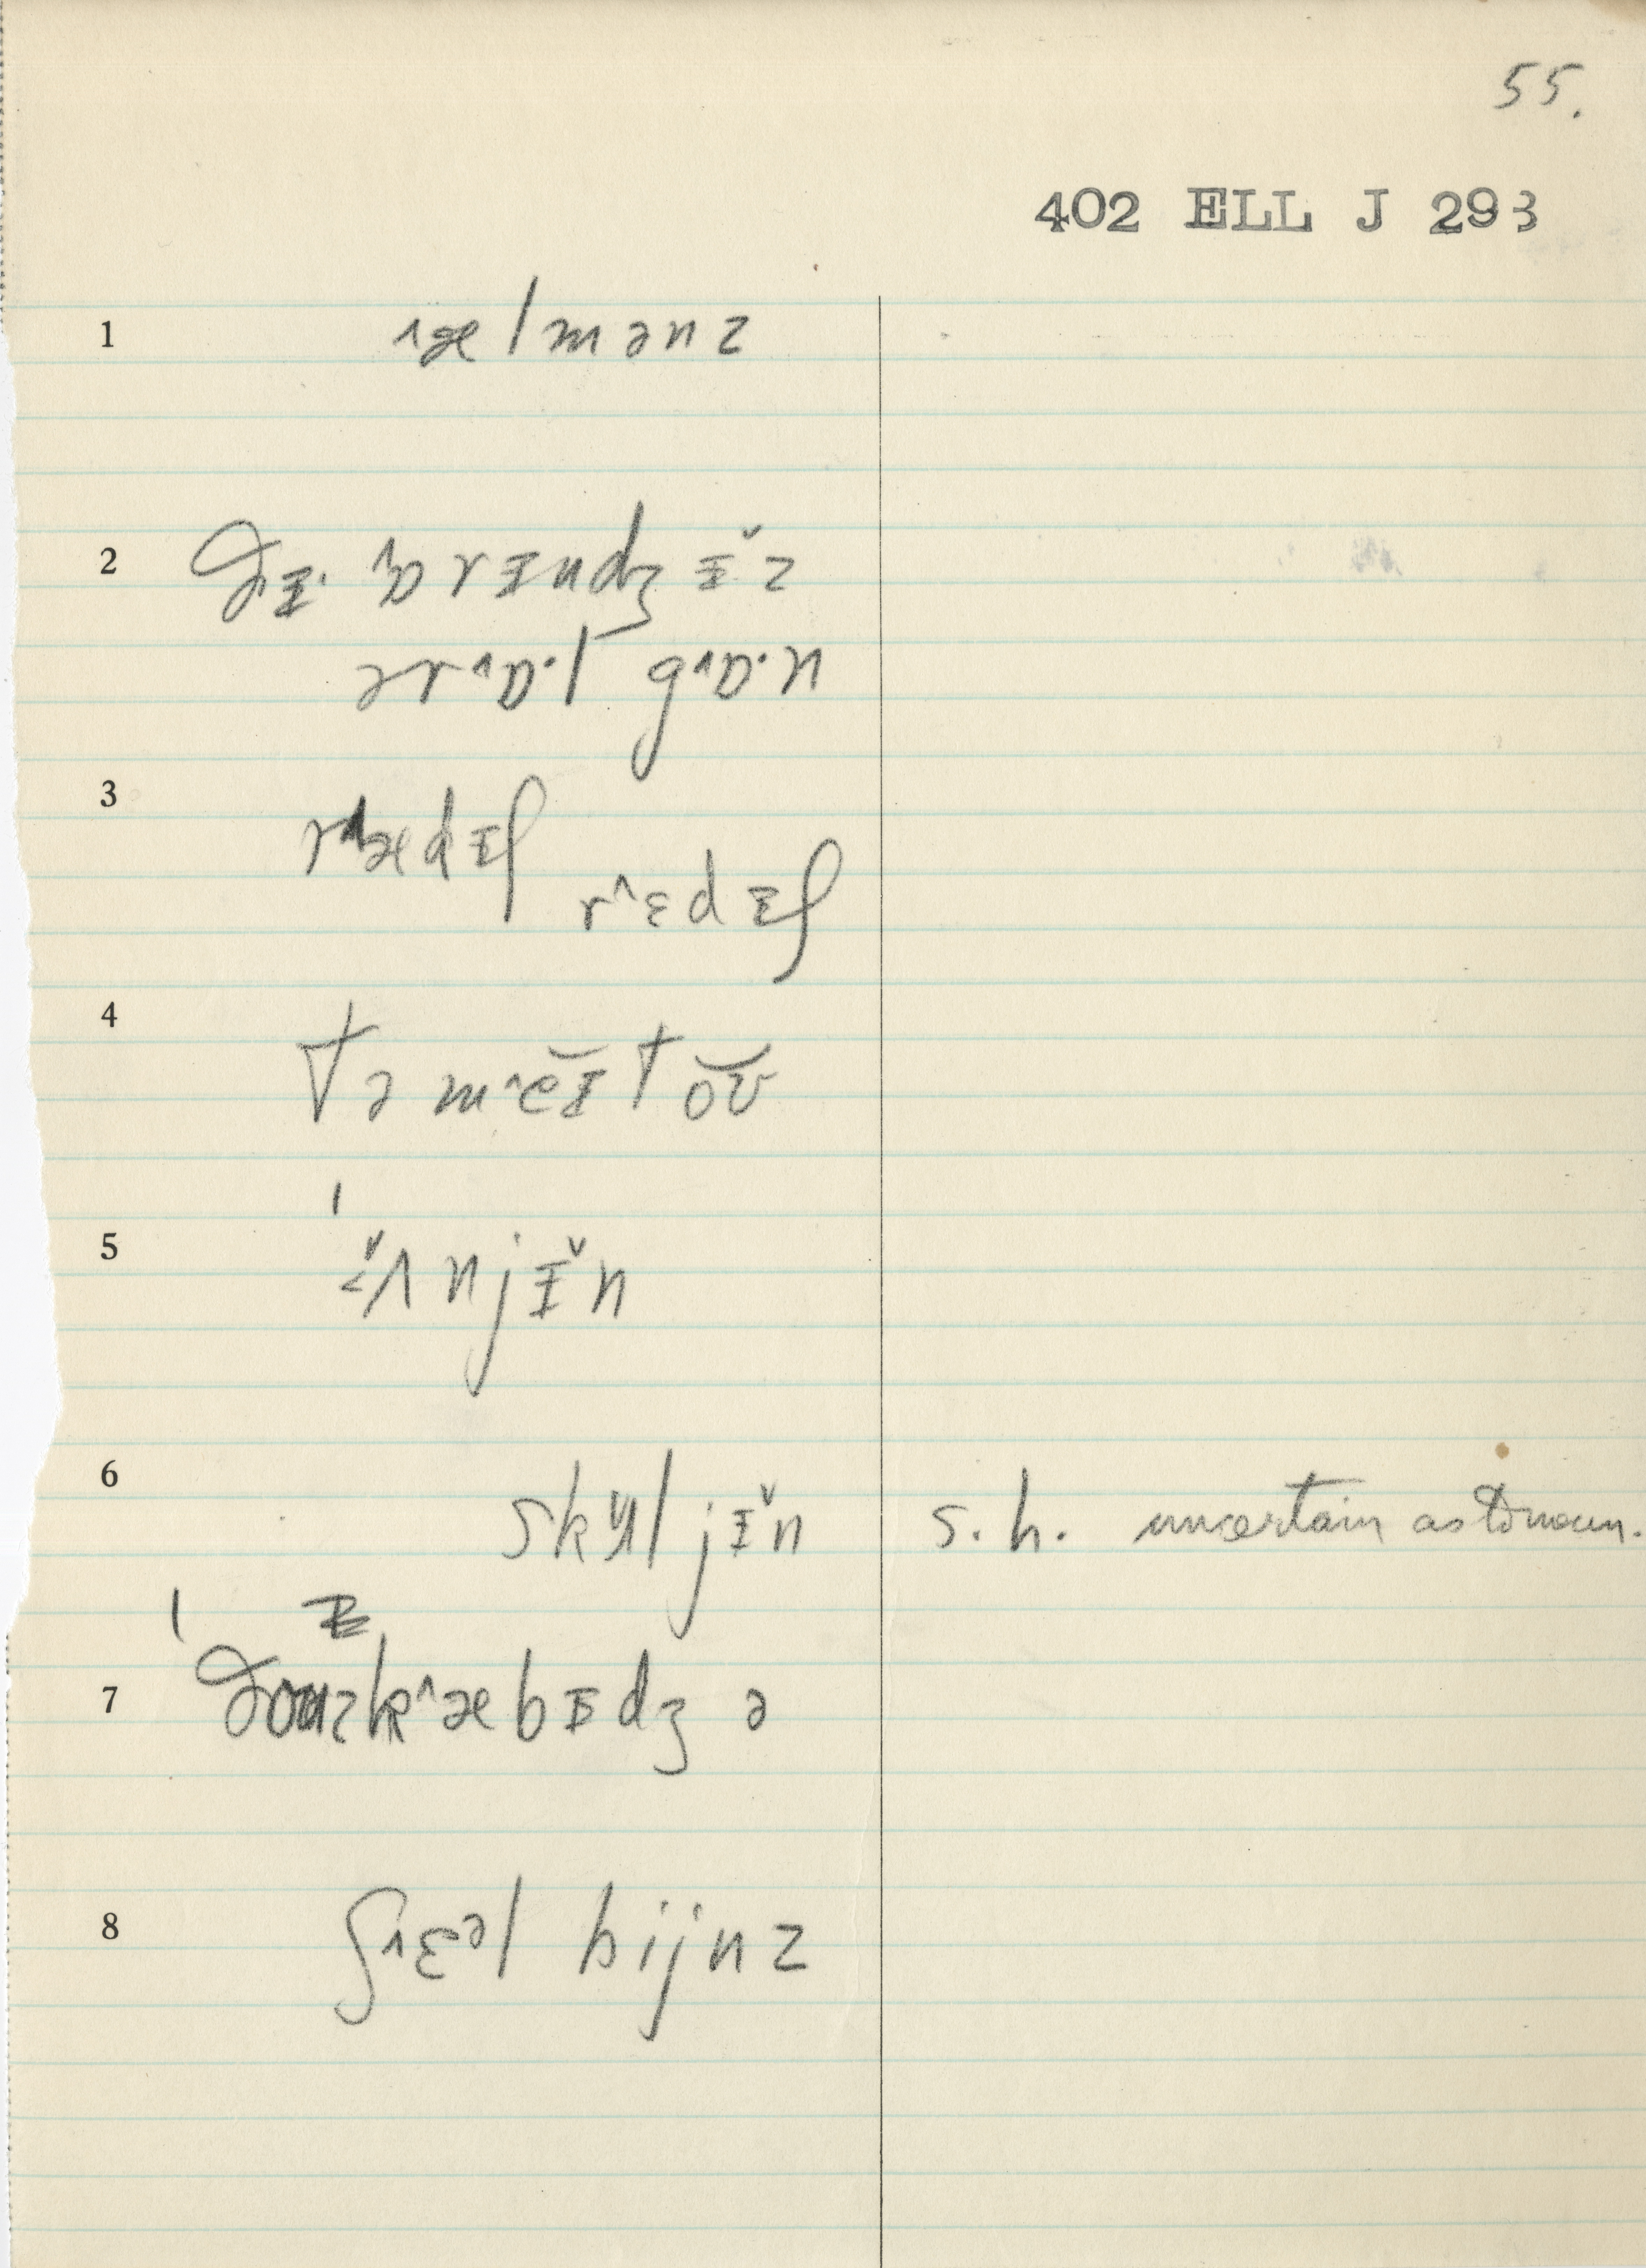 55.
402 ELL J 293
1 ˄ælmənz
2 ðɪ· ˄ɒrɪndʒɪ̆z
ər˄ɒ·l g˄ɒ·n
3 r˄ædɪʃ
r˄ɛdɪʃ
4 tə m˄ĕɪtŏʊ
5 ˄ʌnjɪ̆n
6 skʌ̆ljɪ̆n s.h. uncertain as to noun.
7 k˄æbɪdʒ ə
8 ʃ˄ɛəl bijnz